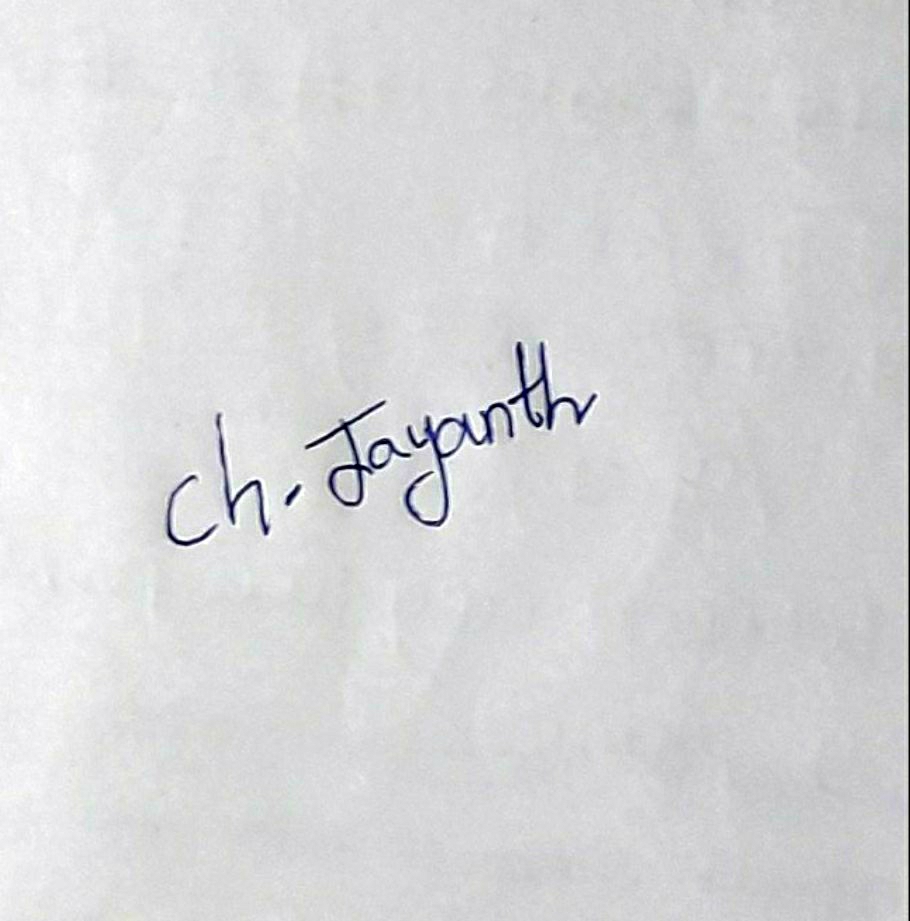 Ch. Jayanth